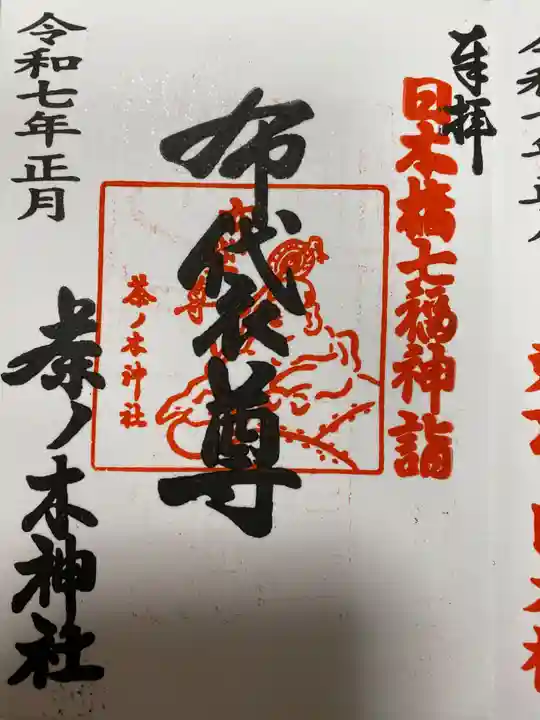 奉拝
日本橋七福神詣
布袋尊
茶ノ木神社
令和七年正月
茶ノ木神社